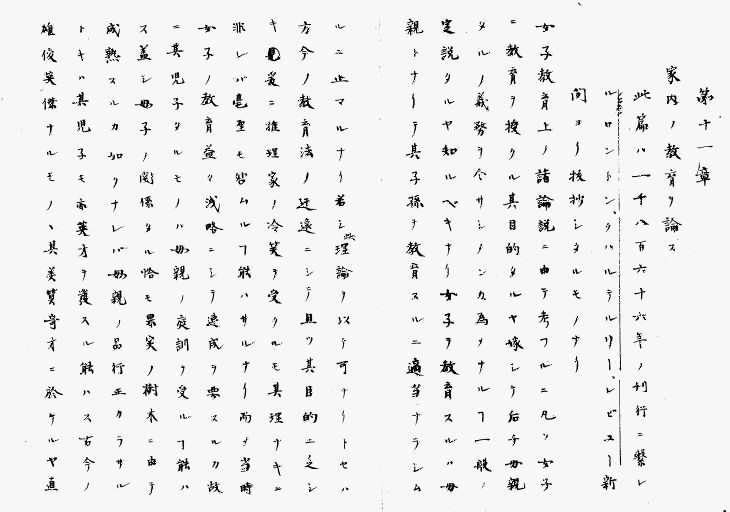 第十一章
家内ノ教育ヲ論ス
此篇ハ一千八百六十六年ノ刊行ニ繋レ
ルロントン、クハルテルリー、レビユー新
聞ヨリ抜抄シタルモノナリ
女子教育上ノ諸論説ニ由テ考フルニ凡ソ女子
ニ教育ヲ授クル其目的タルヤ嫁シテ后チ母親
タルノ義務ヲ令サシメンカ為メナルヿ一般ノ
定説タルヤ知ルヘキナリ女子ヲ教育スルハ母
親トナリテ其子孫ヲ教育スルニ適当ナラシム
ルニ止マルナリ若シ此理論ヲ以テ可ナリトセハ
方今ノ教育法ノ迂遠ニシテ且ツ其目的ニ乏シ
キ見ヨ爰ニ推理家ノ冷笑ヲ受クルモ其理ナキニ
非レバ毫モ咎ムルヿ能ハサルナリ而テ当時
女子ノ教育益々浅略ニシテ速成ヲ要スルカ故
ニ其児子タルモノハ母親ノ庭訓ヲ受ルヿ能ハ
ス蓋シ母子ノ関係タル恰モ果実ノ樹木ニ由テ
成熟スルカ如クナレバ母親ノ品行正カラサル
トキハ其児子モ亦英才ヲ護スル能ハス古今ノ
雄俊英傑ナルモノヽ其美質奇才ニ於ケルヤ直